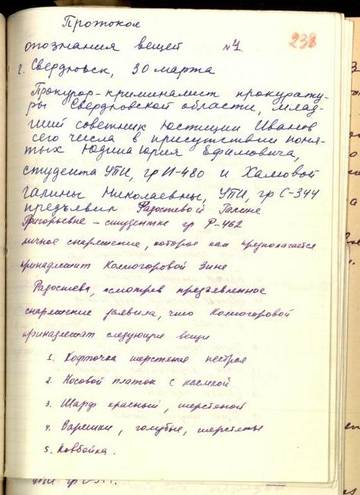 Протокол
опознания вещей №1
238
г. Свердловск, 30 марта
Прокурор-криминалист прокурату-
ры Свердловской области, млад-
ший советник юстиции Иванов
сего числа в присутствии поня-
тых Юдина Юрия Ефимовича,
студента УПИ, гр И-480 и
Галины Николаевны, УПИ, гр С-344
предъявил Радостевой Галине
Григорьевне – студентке гр Р-462
личное снаряжение, которое как предполагается
принадлежит Колмогоровой Зине
Радостева, осмотрев предъявленное
снаряжение заявила, что Колмогоровой
принадлежат следующие вещи
1. Кофточка шерстяная пестрая
2. Носовой платок с каемкой
3. Шарф красный, шерстяной
4. Варежки, голубые, шерстяные
5. Ковбойка.